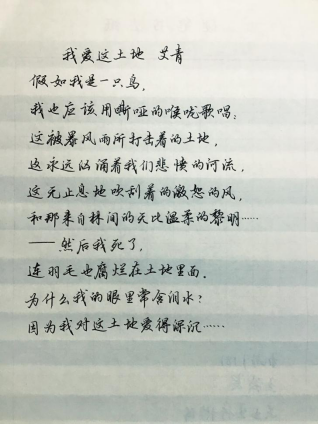 我爱这土地 艾青
假如我是一只鸟，
我也应该用嘶哑的喉咙歌唱：
这被暴风雨所打击着的土地，
这永远汹涌着我们悲愤的河流，
这无止息地吹刮着的激怒的风，
和那来自林间的无比温柔的黎明……
——然后我死了，
连羽毛也腐烂在土地里面。
为什么我的眼里常含泪水？
因为我对这土地爱得深沉……